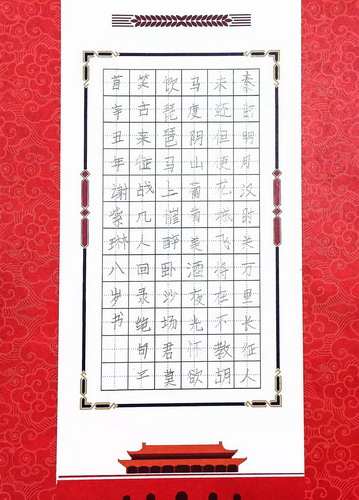 秦时明月汉时关万里长征人
未还但使龙城飞将在不教胡
马度阴山葡萄美酒夜光杯欲
饮琵琶马上催醉卧沙场君莫
笑古来征战几人回录绝句二
首辛丑年谢琳八岁书